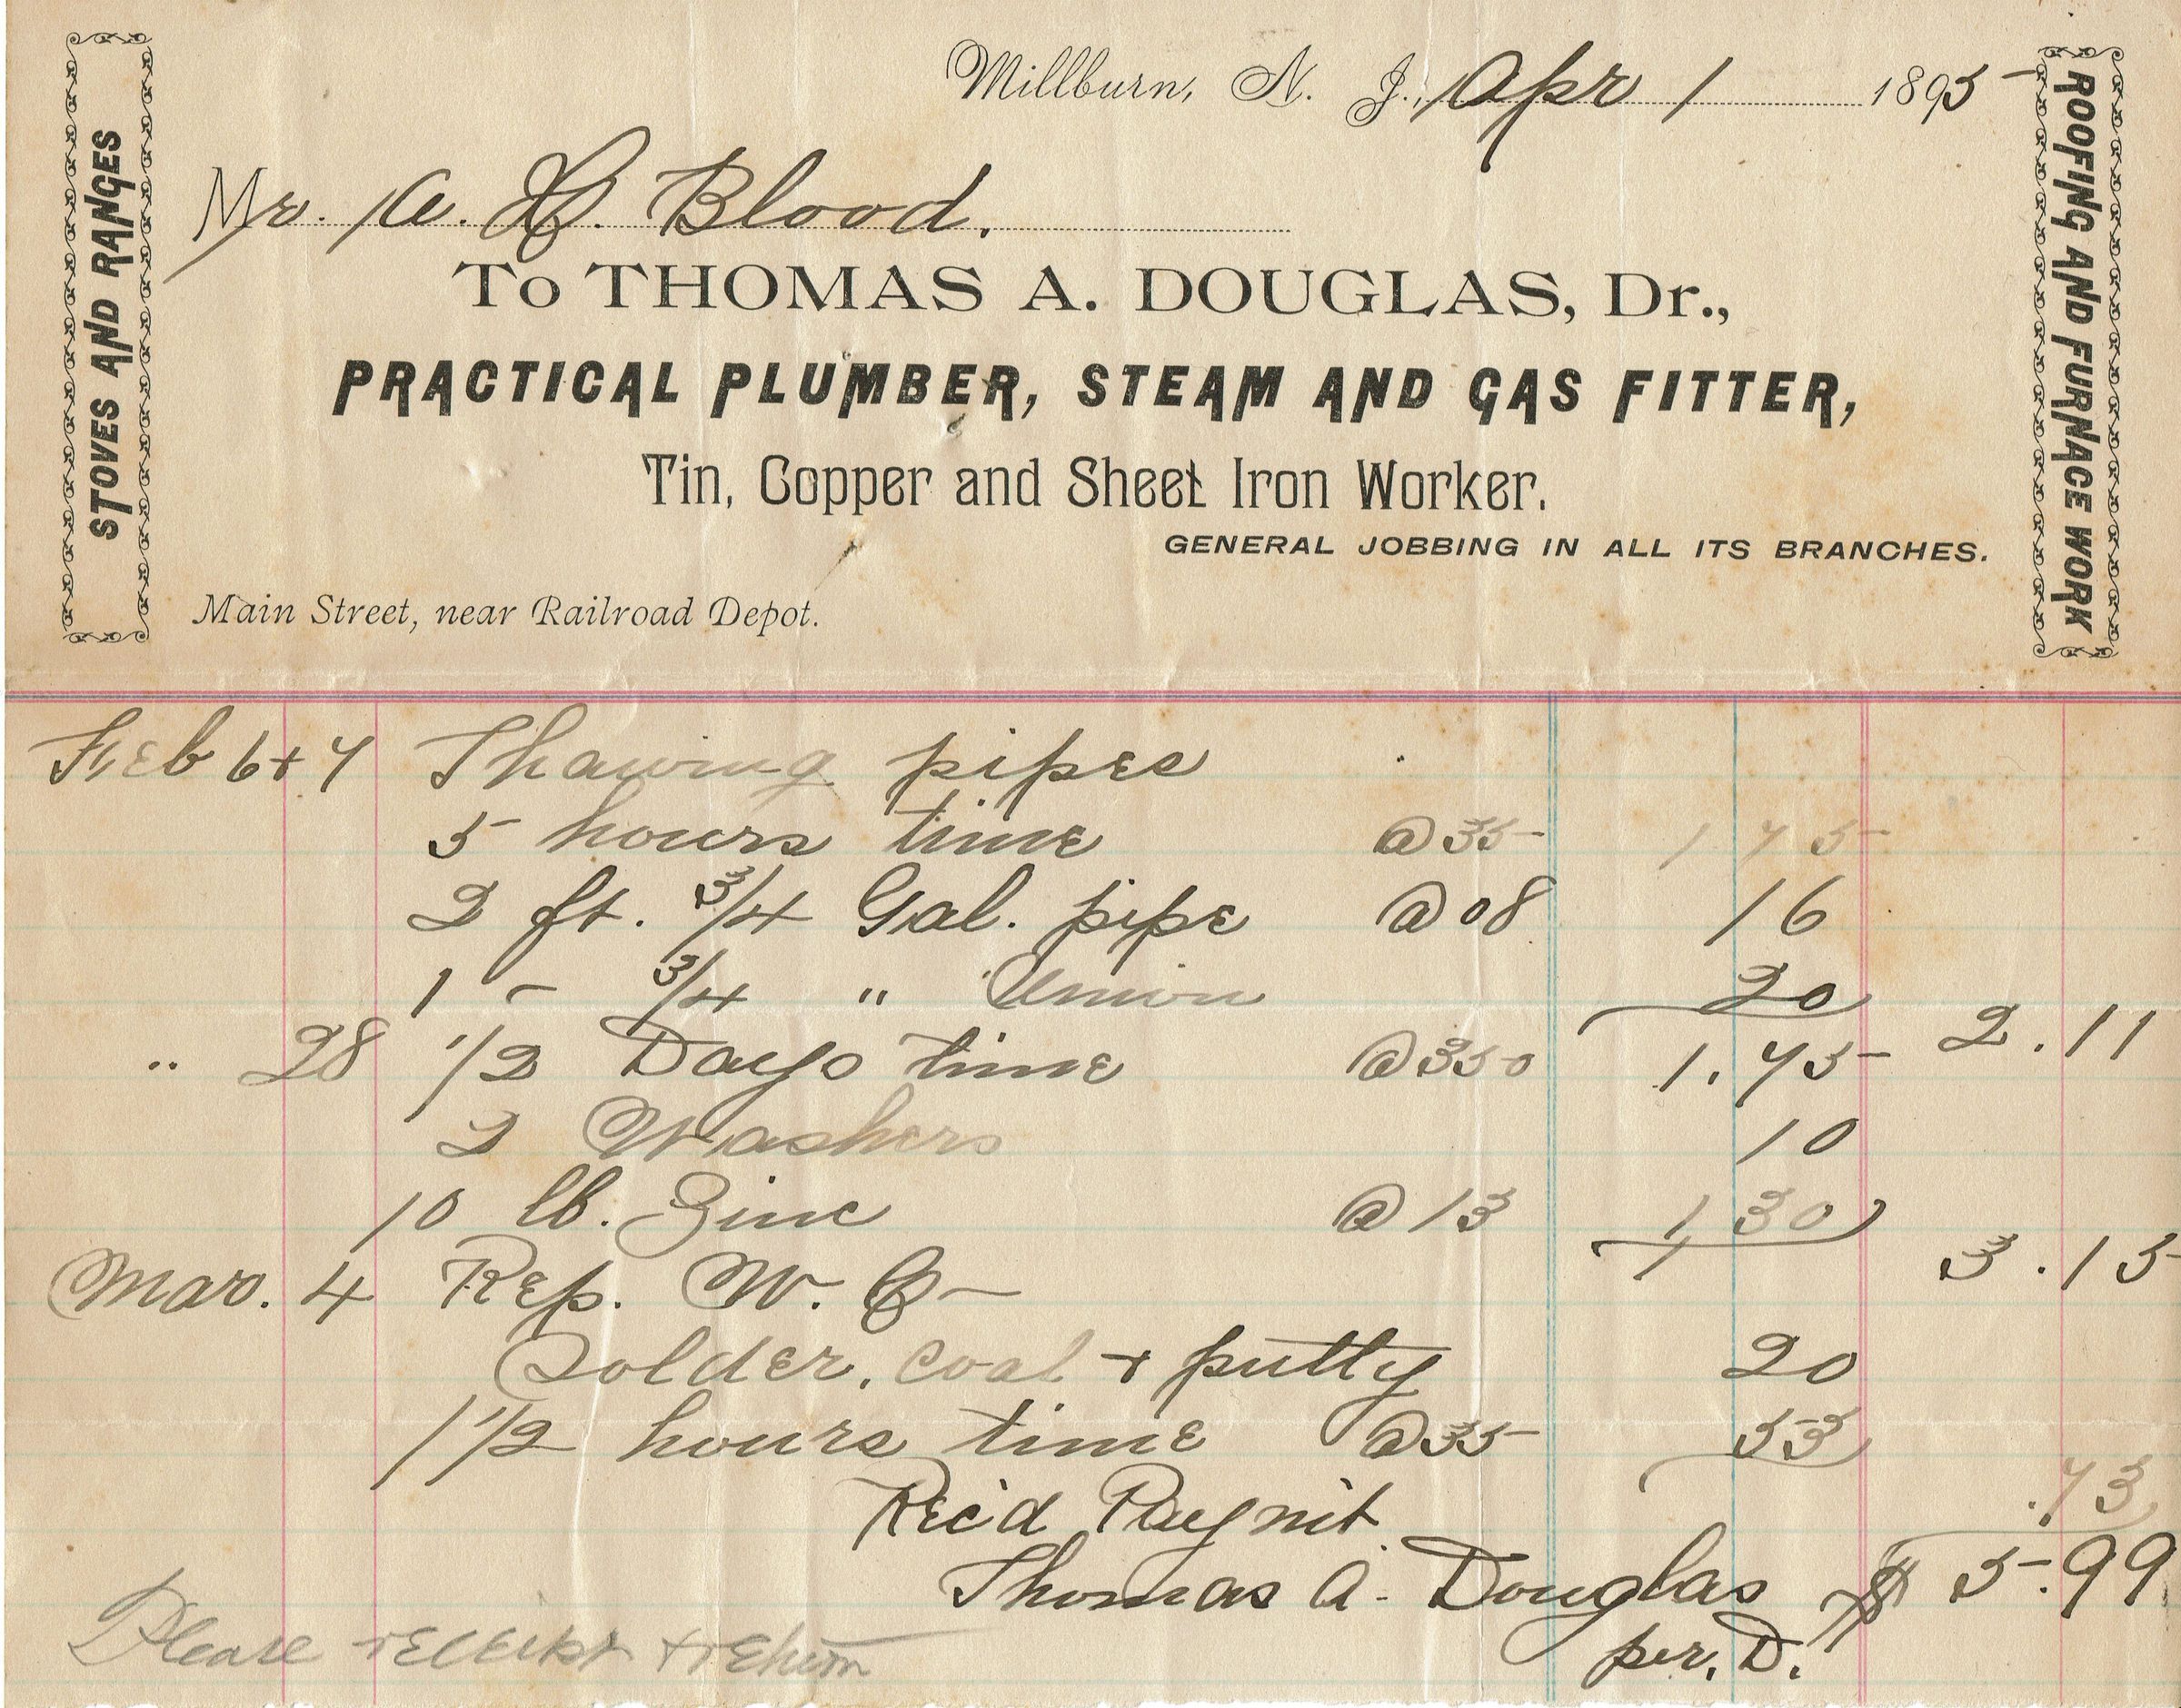 STOVES AND RANGES
ROOFING AND FURNACE WORK
Millburn, N. J., Apr 1 1895
Mr. A. H. Blood.
To THOMAS A. DOUGLAS, Dr.,
PRACTICAL PLUMBER, STEAM AND GAS FITTER,
Tin, Copper and Sheet Iron Worker.
GENERAL JOBBING IN ALL ITS BRANCHES.
Main Street, near Railroad Depot.
Feb 6+7 Thawing pipes
5 hours time @35 1 75
2 ft. 3/4 Gal. pipe @08 16
1 - 3/4 " Union 20 2.11
" 28 1/2 Days time @350 1.75
2 Washers 10
10 lb. Zinc @13 1 30 3.15
Mar. 4 Rep. W. C-
Solder, coal + putty 20
1 1/2 hours time @35 53 .73
Rec'd Paymt
Thomas A. Douglas $ 5.99
per. D.
Please receipt + return